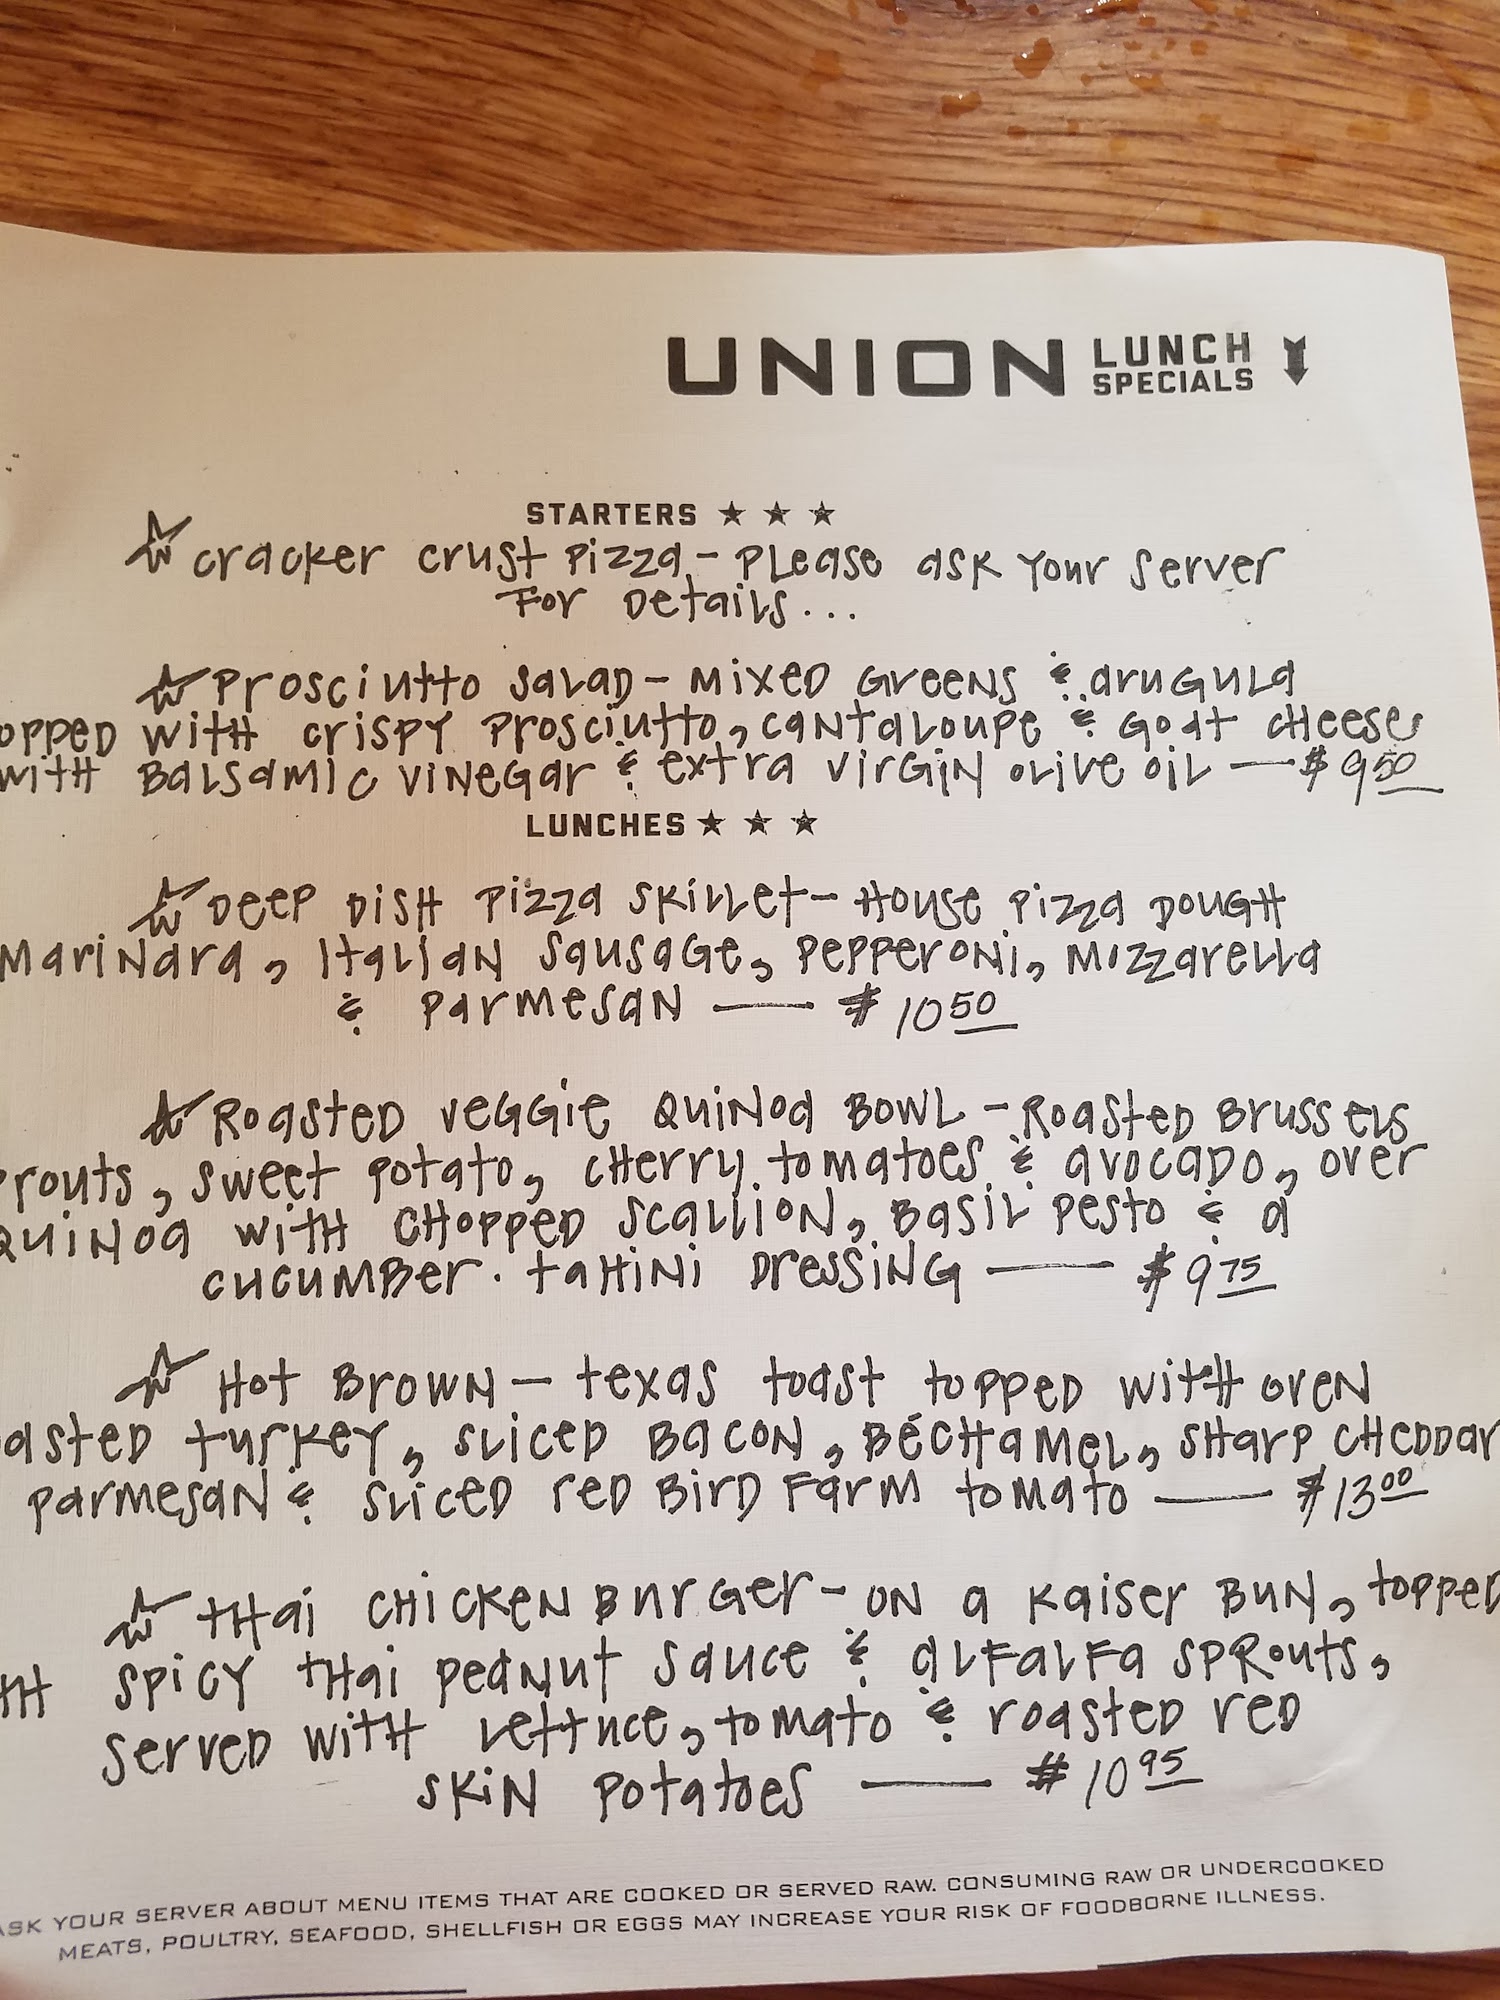 UNION LUNCH SPECIALS
STARTERS ★ ★ ★
☆ Cracker Crust Pizza - Please ask your server
For Details...
☆ Prosciutto Salad - Mixed Greens & arugula
opped with crispy prosciutto, cantaloupe & Goat cheese
with Balsamic vinegar & extra virgin olive oil — $9.50
LUNCHES ★ ★ ★
☆ Deep Dish Pizza Skillet - House pizza dough
Marinara, Italian sausage, pepperoni, mozzarella
& parmesan — $10.50
☆ Roasted Veggie Quinoa Bowl - Roasted Brussels
prouts, sweet potato, cherry tomatoes & avocado, over
Quinoa with chopped scallion, Basil pesto & a
cucumber. tahini dressing — $9.75
☆ Hot Brown - texas toast topped with oven
oasted turkey, sliced Bacon, Béchamel, sharp cheddar
parmesan & sliced red Bird Farm tomato — $13.00
☆ Thai Chicken Burger - on a Kaiser Bun, topped
th spicy thai peanut sauce & alfalfa sprouts,
served with lettuce, tomato & roasted red
skin potatoes — $10.95
ASK YOUR SERVER ABOUT MENU ITEMS THAT ARE COOKED OR SERVED RAW. CONSUMING RAW OR UNDERCOOKED
MEATS, POULTRY, SEAFOOD, SHELLFISH OR EGGS MAY INCREASE YOUR RISK OF FOODBORNE ILLNESS.